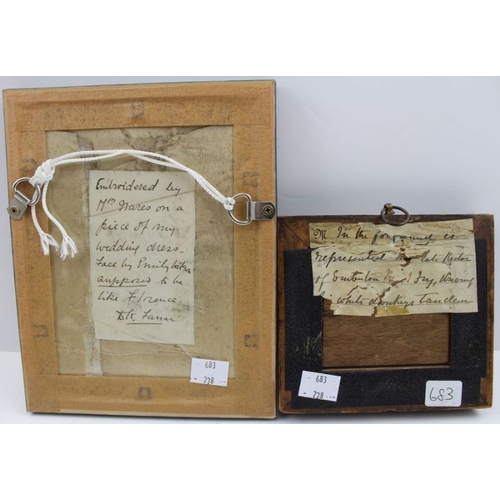 Embroidered by
Mrs Nares on a
piece of my
wedding dress.
Face by Emily
supposed to be
like Florence.
683
228
In the foreground is
represented the late Rector
of
white donkeys tandem
683
228
683